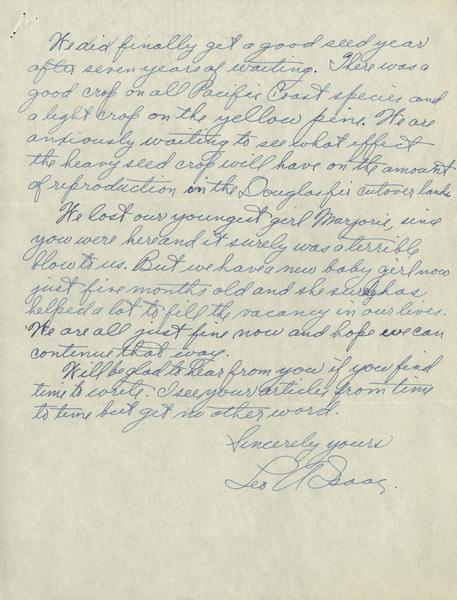 We did finally get a good seed year
after seven years of waiting. There was a
good crop on all Pacific Coast species and
a light crop on the yellow pine. We are
anxiously waiting to see what effect
the heavy seed crop will have on the amount
of reproduction in the Douglas fir cutover lands
We lost our youngest girl Marjorie, since
you were here and it surely was a terrible
blow to us. But we have a new baby girl now
just five months old and she surely has
helped a lot to fill the vacancy in our lives.
We are all just fine now and hope we can
continue that way.
Will be glad to hear from you if you find
time to write. I see your articles from time
to time but get no other word.
Sincerely yours
Leo A Isaac.